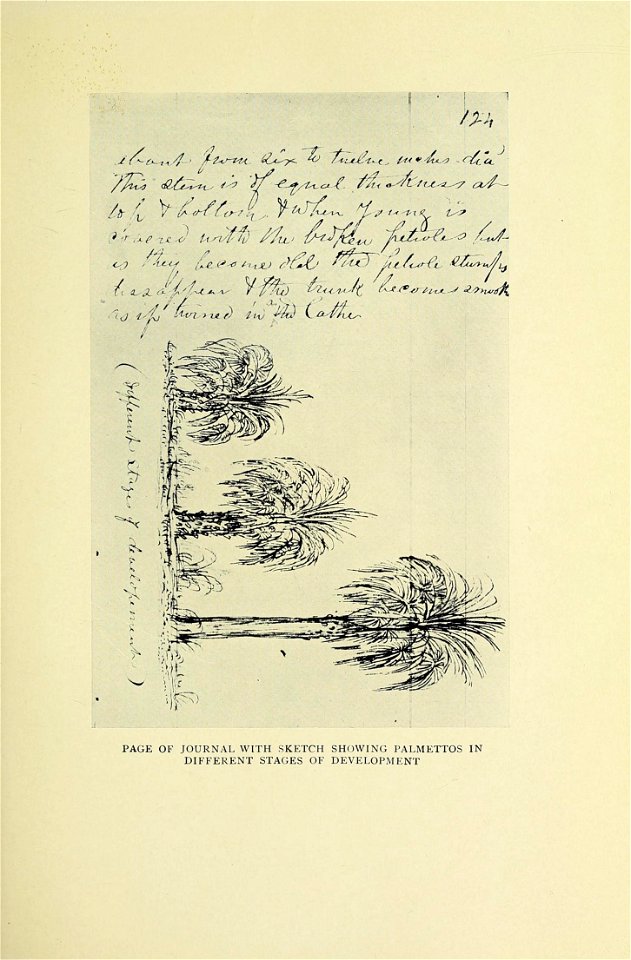 124
about from six to twelve inches dia
This stem is of equal thickness at
top & bottom, & when young is
covered with the broken petioles but
as they become old the petiole stumps
dissappear & the trunk becomes smooth
as if turned in a the Lathe
(different stages of developement)
PAGE OF JOURNAL WITH SKETCH SHOWING PALMETTOS IN
DIFFERENT STAGES OF DEVELOPMENT